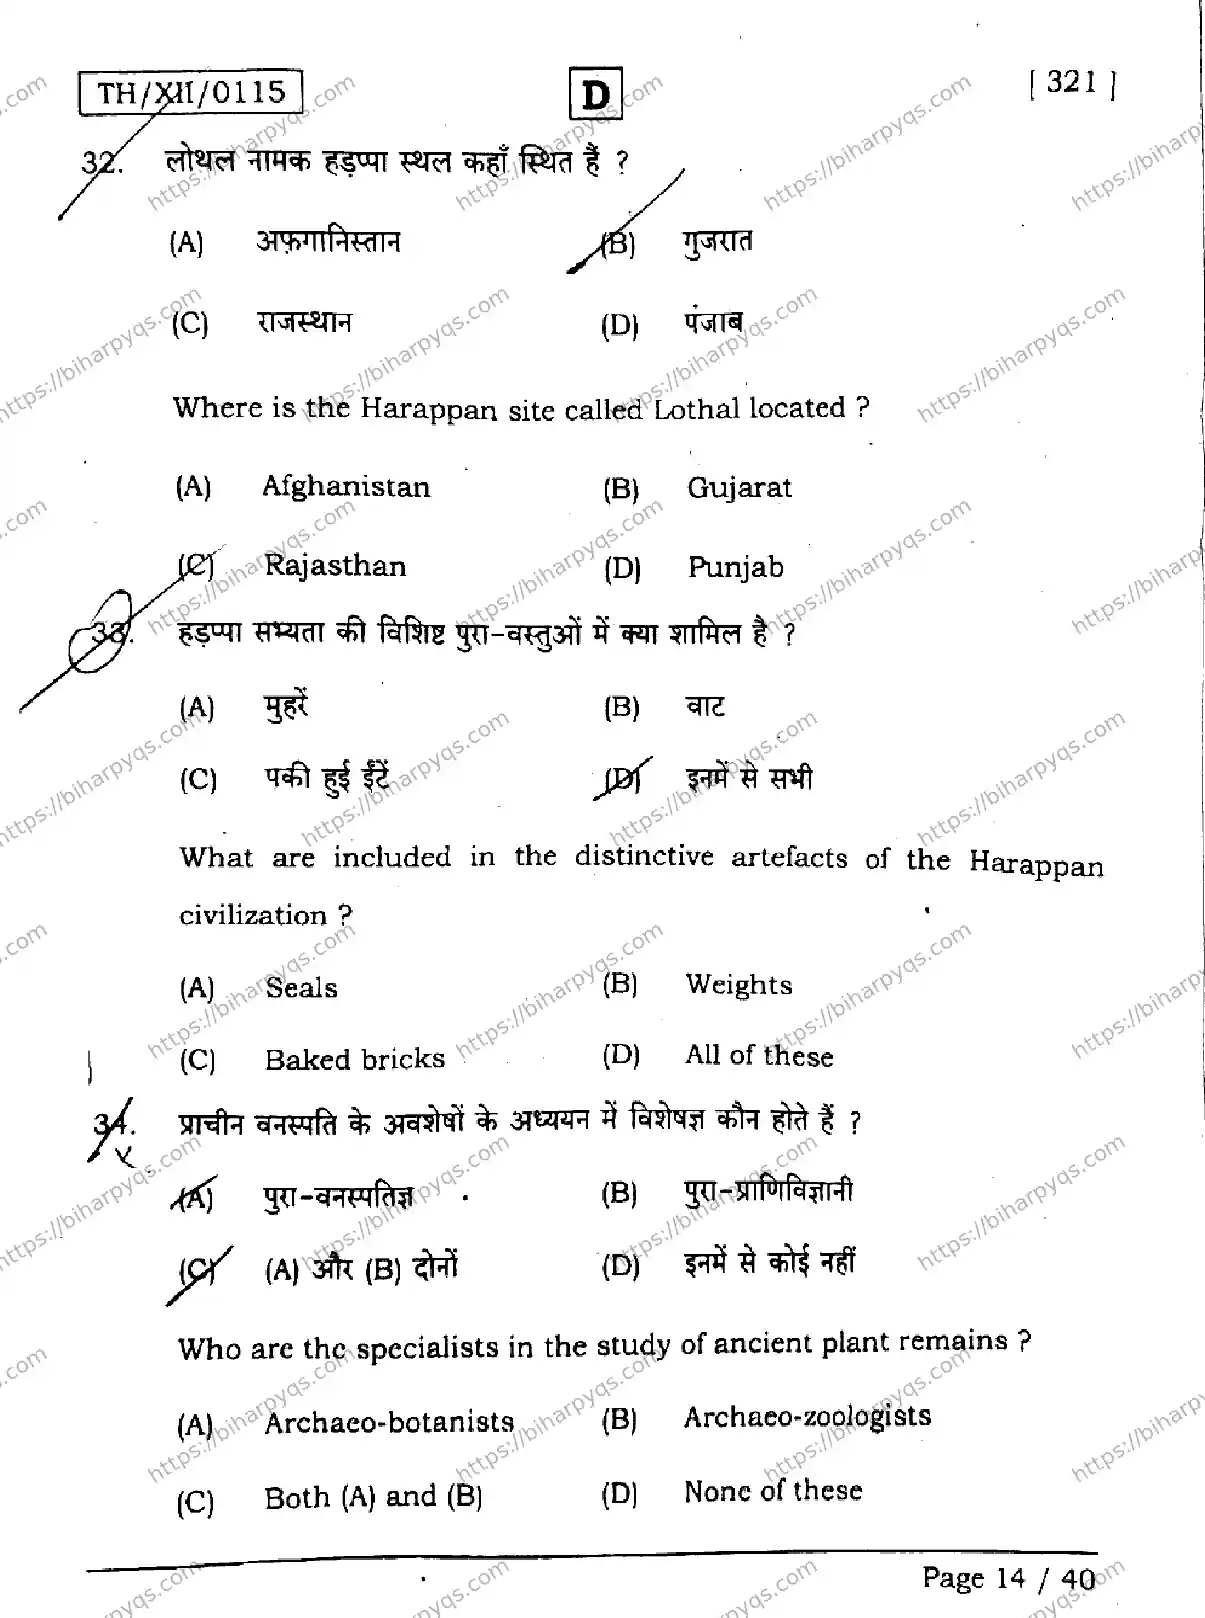 TH/XII/0115 D [ 321 ]
32. लोथल नामक हड़प्पा स्थल कहाँ स्थित हैं ?
(A) अफ़गानिस्तान (B) गुजरात
(C) राजस्थान (D) पंजाब
Where is the Harappan site called Lothal located ?
(A) Afghanistan (B) Gujarat
(C) Rajasthan (D) Punjab
33. हड़प्पा सभ्यता की विशिष्ट पुरा-वस्तुओं में क्या शामिल है ?
(A) मुहरें (B) वाट
(C) पकी हुई ईंटें (D) इनमें से सभी
What are included in the distinctive artefacts of the Harappan
civilization ?
(A) Seals (B) Weights
(C) Baked bricks (D) All of these
34. प्राचीन वनस्पति के अवशेषों के अध्ययन में विशेषज्ञ कौन होते हैं ?
(A) पुरा-वनस्पतिज्ञ (B) पुरा-प्राणिविज्ञानी
(C) (A) और (B) दोनों (D) इनमें से कोई नहीं
Who are the specialists in the study of ancient plant remains ?
(A) Archaeo-botanists (B) Archaeo-zoologists
(C) Both (A) and (B) (D) None of these
Page 14 / 40
https://biharpyqs.com